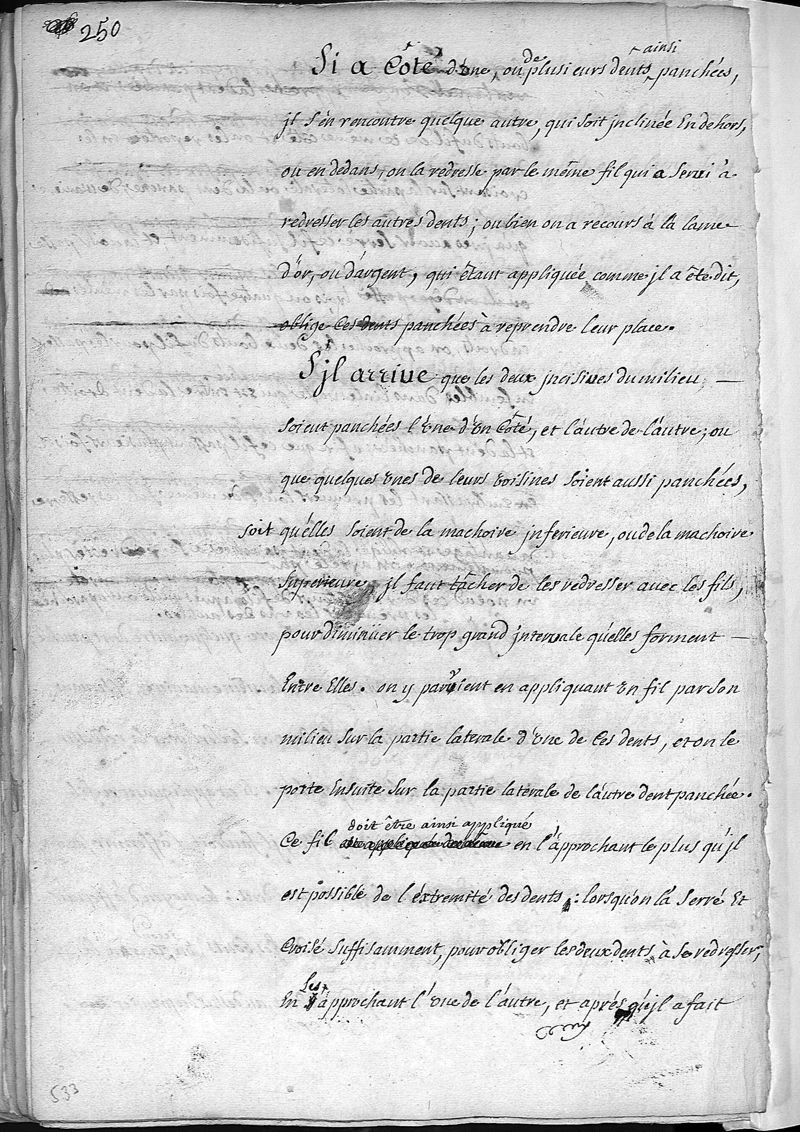 250
ainsi
Si a Côté d'une, ou de plusieurs dents panchées,
jl s'en rencontre quelque autre, qui soit jnclinée En dehors,
ou en dedans, on la redresse par le même fil qui a servi a
redresser les autres dents; ou bien on a recours à la lame
d'or, ou d'argent, qui êtant appliquée comme jl a êté dit,
oblige Ces dents panchées à reprendre leur place.
S'jl arrive, que les deux jncisives du milieu, —
soient panchées l'une d'un Côté, et l'autre de l'autre; ou
que quelques unes de leurs voisines soient aussi panchées,
soit qu'elles soient de la machoire jnferieure, ou de la machoire
superieure, jl faut tâcher de les redresser avec les fils,
pour diminuer le trop grand jntervale qu'elles forment —
Entre Elles. on y parvient en appliquant un fil par son
milieu sur la partie laterale d'une de Ces dents, et on le
porte Ensuite sur la partie latérale de l'autre dent panchée.
doit être ainsi appliqué
Ce fil en l'approchant le plus qu'jl
est possible de l'éxtremité des dents: lorsqu'on l'a serré Et
Croisé suffisamment, pour obliger les deux dents à se redresser,
les
En approchant l'une de l'autre, et aprés qu'jl a fait
533